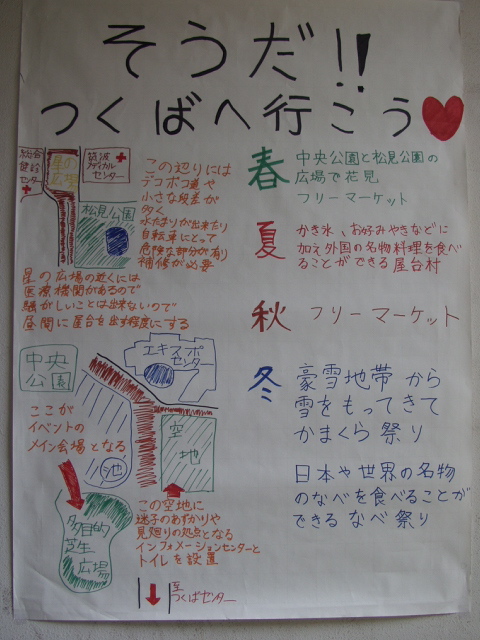 そうだ!!
つくばへ行こう
総合
健診
センター
星の
広場
筑波
メディカル
センター
松見公園
この辺りには
デコボコ道や
小さな段差が
多く
水たまりが出来たり
自転車にとって
危険な部分が有り
補修が必要
星の広場の近くには
医療機関があるので
騒がしいことは出来ないので
昼間に屋台を出す程度にする
中央
公園
エキスポ
センター
ここが
イベントの
メイン会場となる
池
空
地
多目的
芝生
広場
この空地に
迷子のあずかりや
見廻りの処点となる
インフォメーションセンターと
トイレを設置
至
つくばセンター
春
中央公園と松見公園の
広場で花見
フリーマーケット
夏
かき氷、お好みやきなどに
加え外国の名物料理を食べ
ることができる屋台村
秋
フリーマーケット
冬
豪雪地帯から
雪をもってきて
かまくら祭り
日本や世界の名物
のなべを食べることが
できるなべ祭り